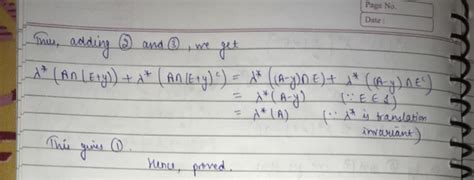 Page No.
Date :
Thus, adding ② and ③, we get
λ* (A∩(E+y)) + λ* (A∩(E+y)ᶜ) = λ* ((A-y)∩E) + λ* ((A-y)∩Eᶜ)
= λ* (A-y) (∵ E ∈ 𝓛)
= λ* (A) (∵ λ* is translation
invariant)
This gives ①.
Hence, proved.